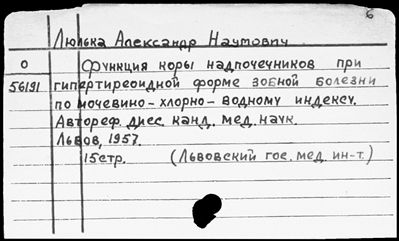 6
Люлька Александр Наумович
О Функция коры надпочечников при
56191 гипертиреоидной форме зобной болезни
по мочевино-хлорно-водному индексу.
Автореф. дисс. канд. мед. наук.
Львов, 1957.
15стр. (Львовский гос. мед. ин-т.)